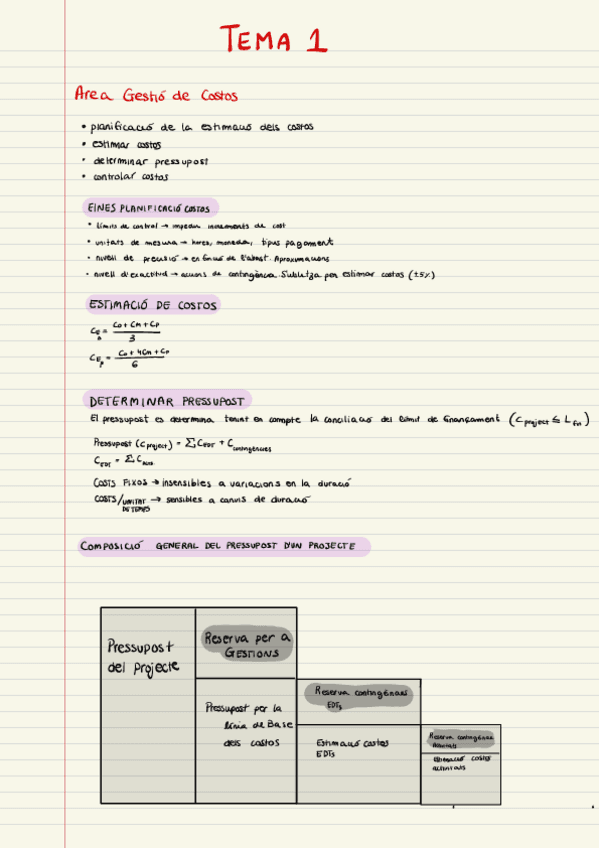 TEMA 1
Area Gestió de Costos
• planificació de la estimació dels costos
• estimar costos
• determinar pressupost
• controlar costos
EINES PLANIFICACIÓ COSTOS
• límits de control → impedir increments de cost
• unitats de mesura → hores, monedes, tipus pagament
• nivell de precisió → en funció de l'abast. Aproximacions
• nivell d'exactitud → accions de contingència. S'utilitza per estimar costos (±5%)
ESTIMACIÓ DE COSTOS
C_E = (Co + Cm + Cp) / 3
C_E = (Co + 4Cm + Cp) / 6
DETERMINAR PRESSUPOST
El pressupost es determina tenint en compte la conciliació del límit de finançament (C project ≤ L fin)
Pressupost (C project) = ∑ C EDT + C contingències
C EDT = ∑ C
COSTS FIXOS → insensibles a variacions en la duració
COSTS/UNITAT DE TEMPS → sensibles a canvis de duració
COMPOSICIÓ GENERAL DEL PRESSUPOST D'UN PROJECTE
Pressupost
del projecte
Reserva per a
GESTIONS
Pressupost per la
línia de Base
dels costos
Reserva contingències
EDTs
Estimació costos
EDTs
Reserva contingències
activitats
estimació costos
activitats